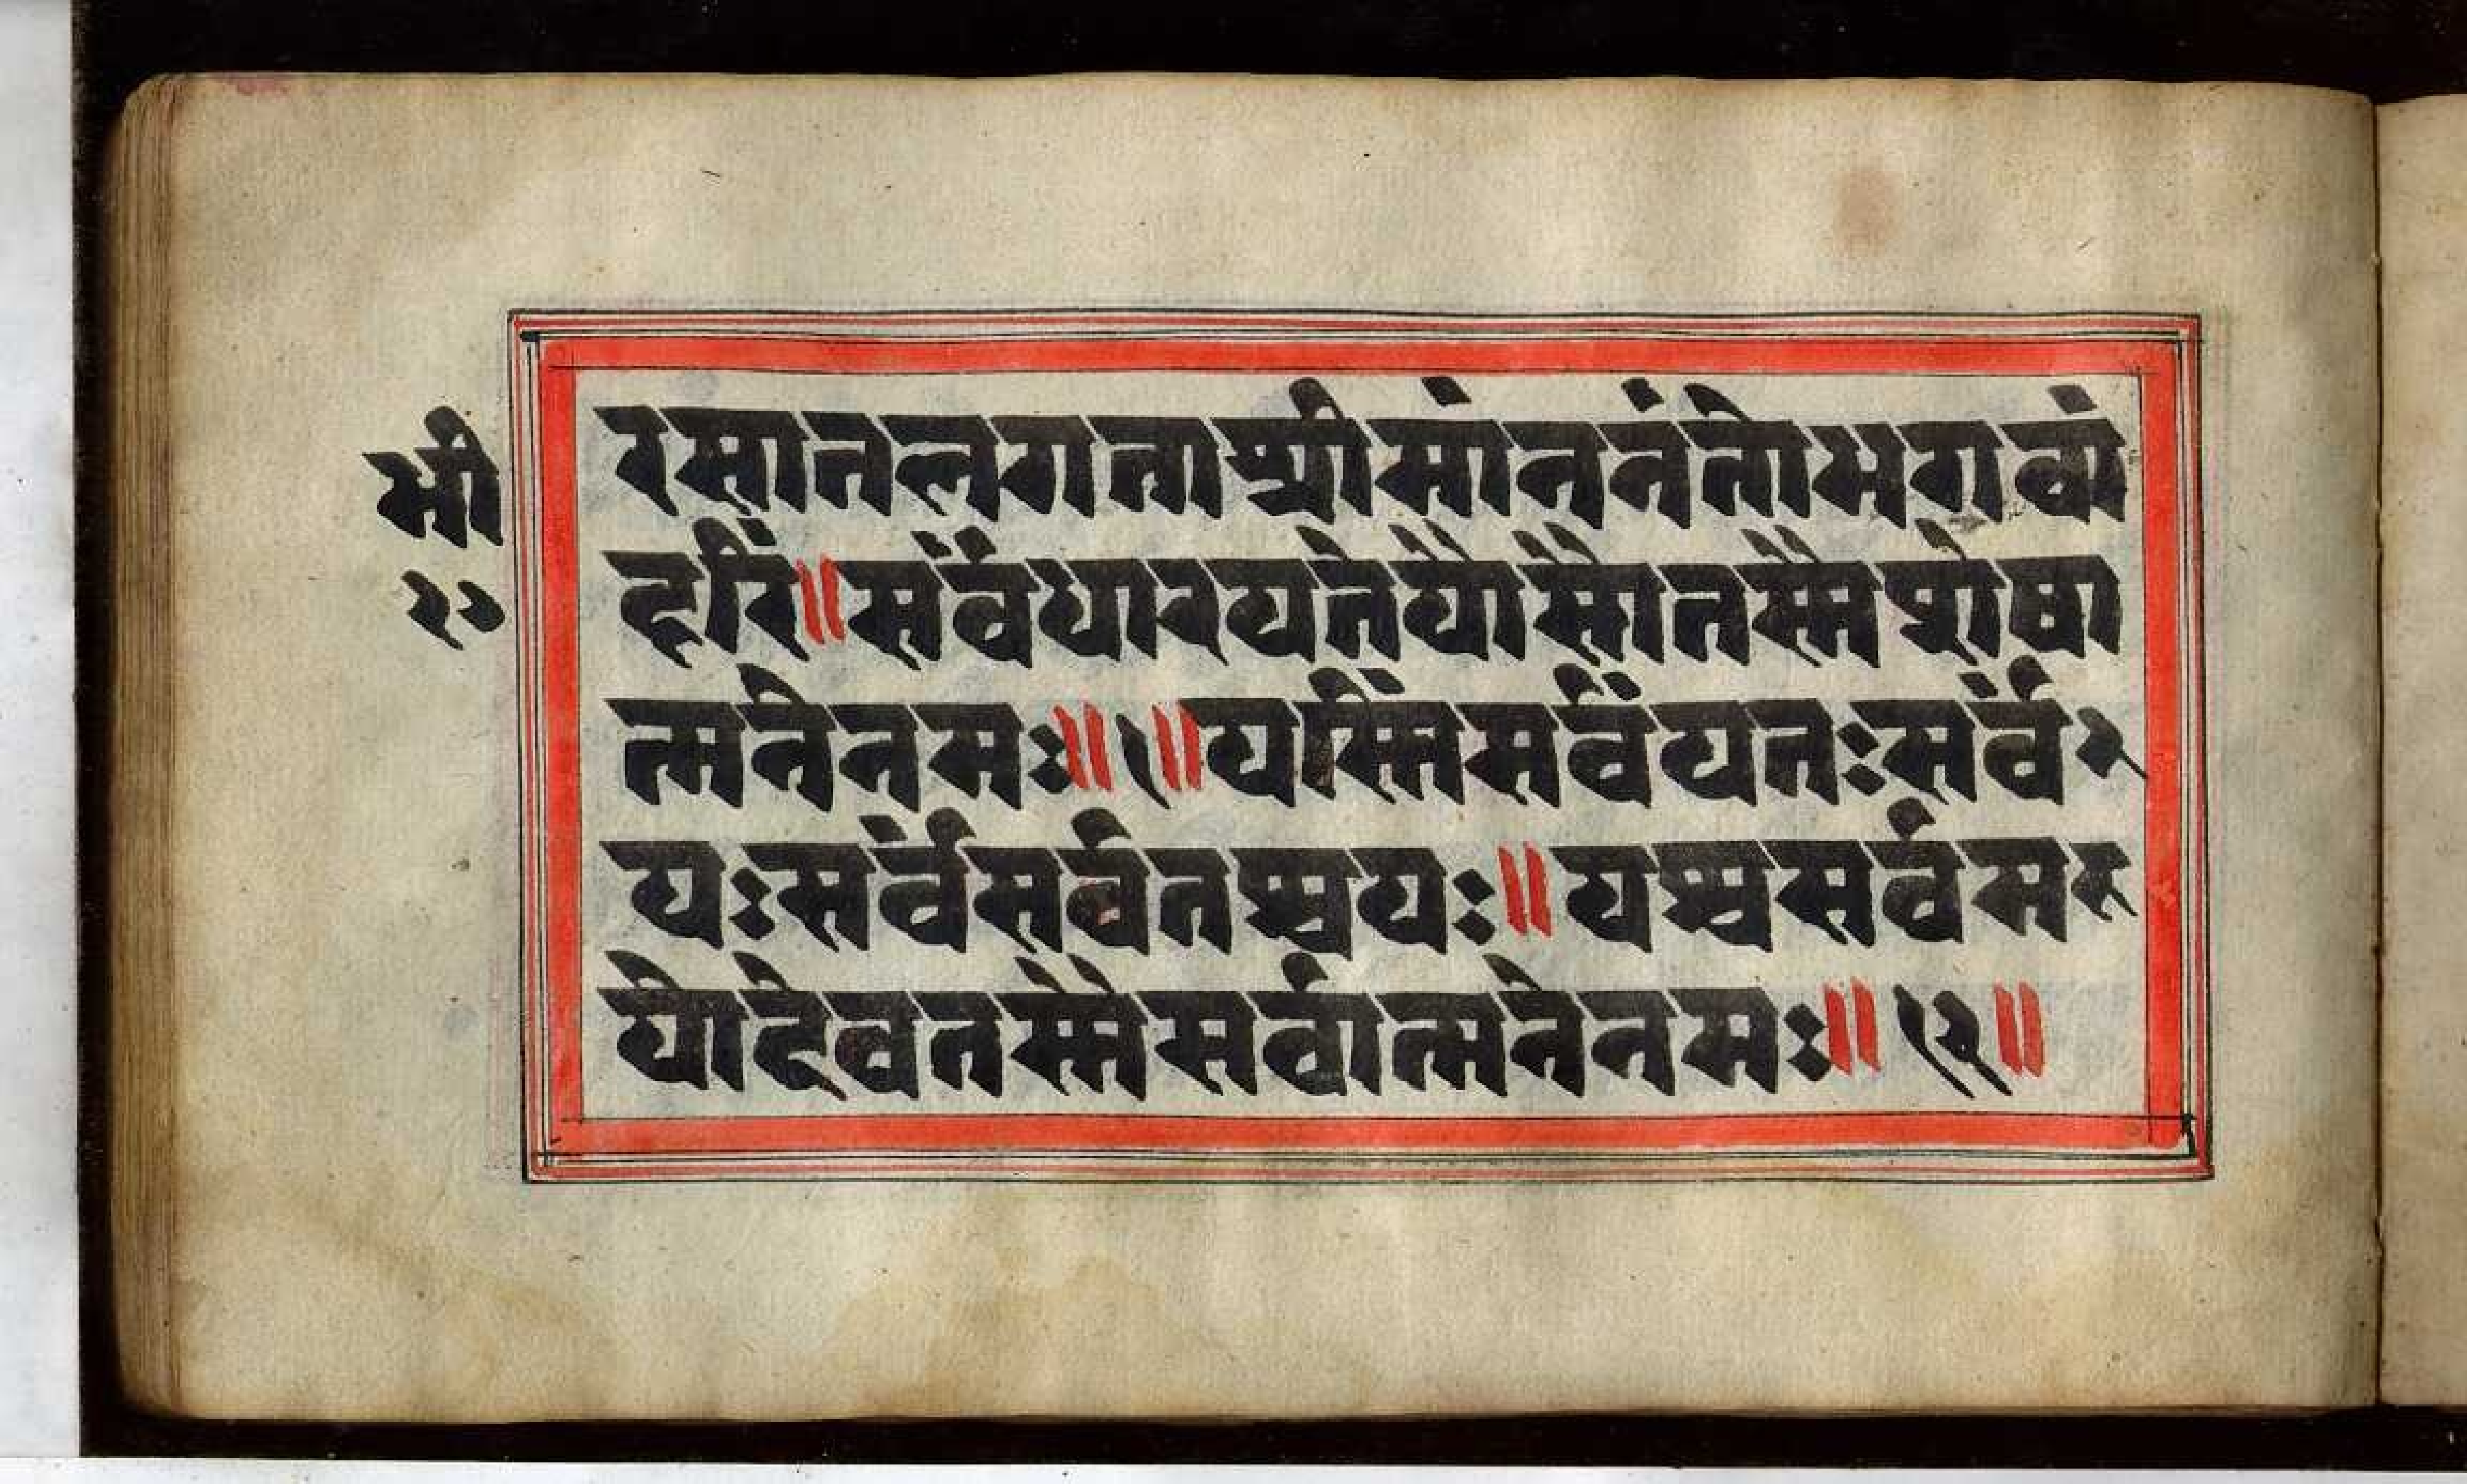 भी
२०
रसातलगताश्रीमांननंतोभगवां
हरिं॥सर्वंधारयतेयोसौतस्मैशेषा
त्मनेनमः॥१॥यस्मिंसर्वंयतःसर्वं१
यःसर्वंसर्वतश्चयः॥यश्चसर्वमह
योदेवतस्मैसर्वात्मनेनमः॥१२॥